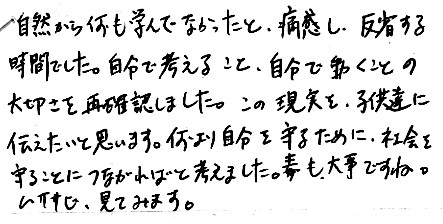 自然から何も学んでなかったと、痛感し、反省する
時間でした。自分で考えること、自分で動くことの
大切さを再確認しました。この現実を、子供達に
伝えたいと思います。何より自分を守るために、社会を
守ることにつながればと考えました。毒も、大事ですね。
見てみます。